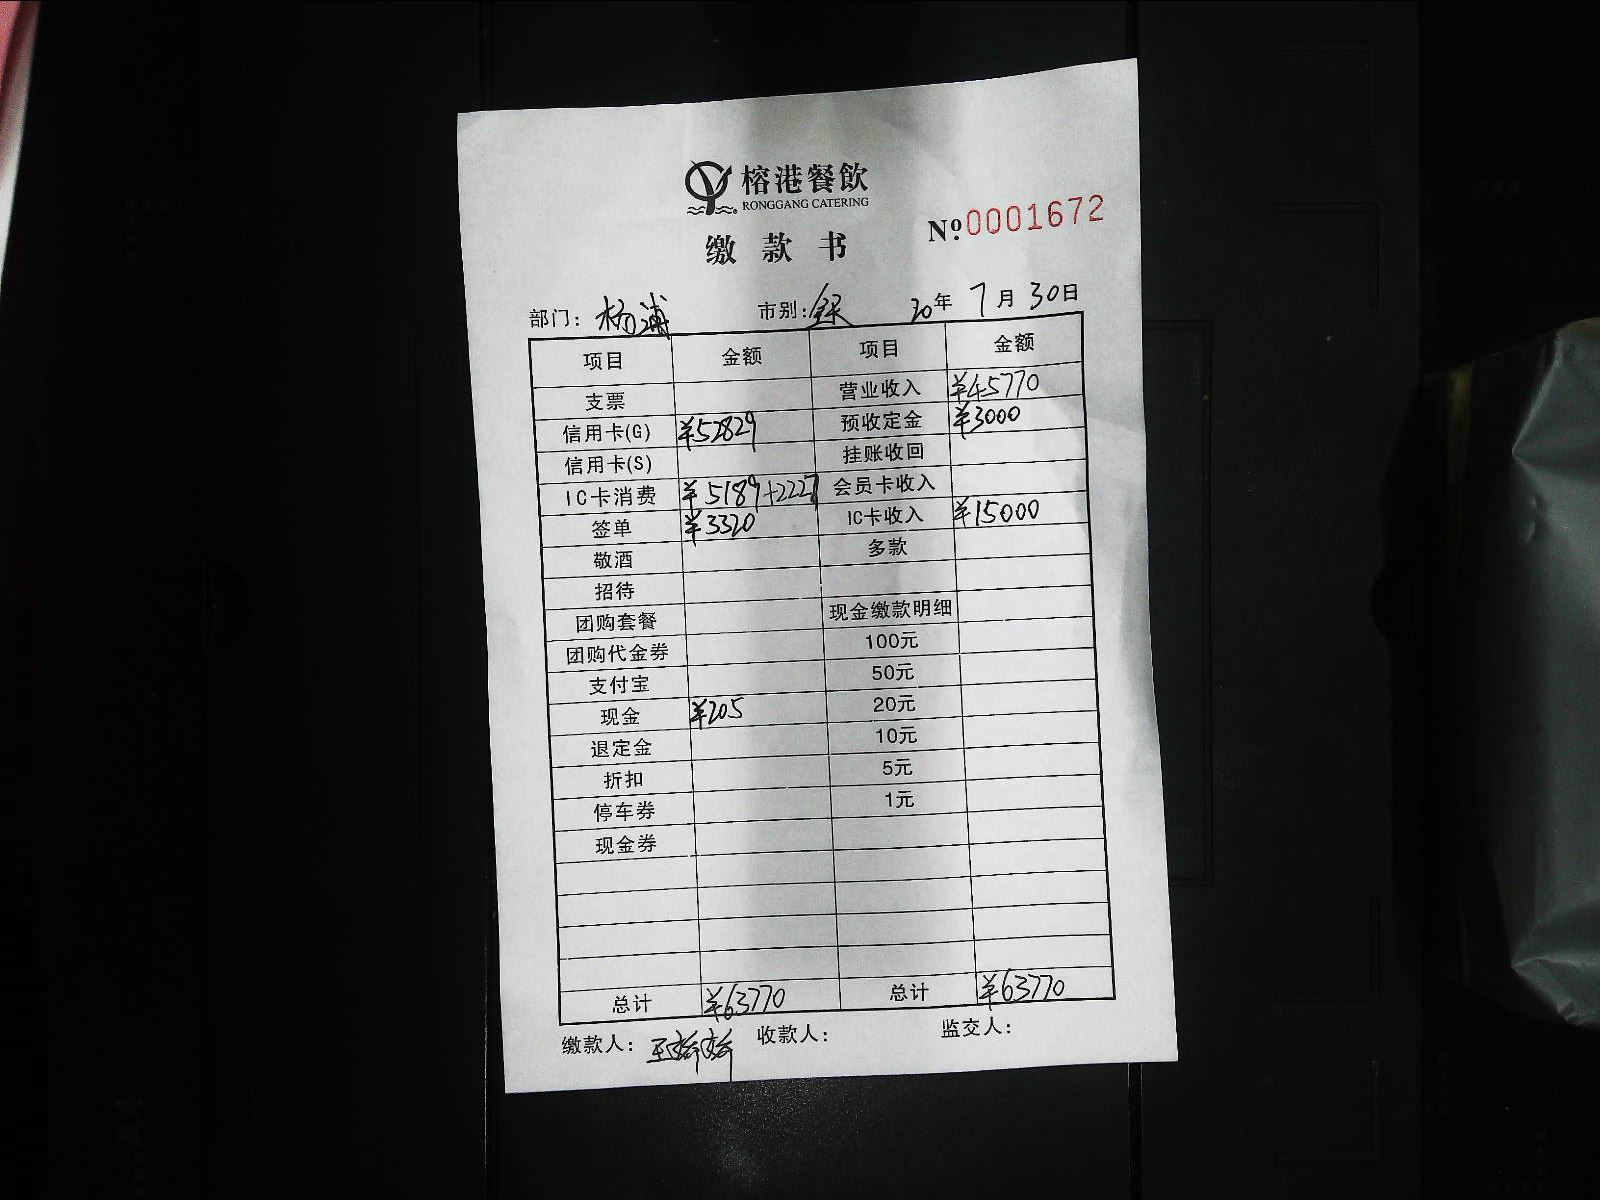 榕港餐飲
RONGGANG CATERING
Nº.0001672
缴款书
部门：杨浦 市别：银 20年 7月 30日
项目 金额 项目 金额
支票 营业收入 ¥45770
信用卡(G) ¥52829 预收定金 ¥3000
信用卡(S) 挂账收回
IC卡消费 ¥5189+2227 会员卡收入
签单 ¥3320 IC卡收入 ¥15000
敬酒 多款
招待
团购套餐 现金缴款明细
团购代金券 100元
支付宝 50元
现金 ¥205 20元
退定金 10元
折扣 5元
停车券 1元
现金券
总计 ¥63770 总计 ¥63770
缴款人： 王娇娇 收款人： 监交人：